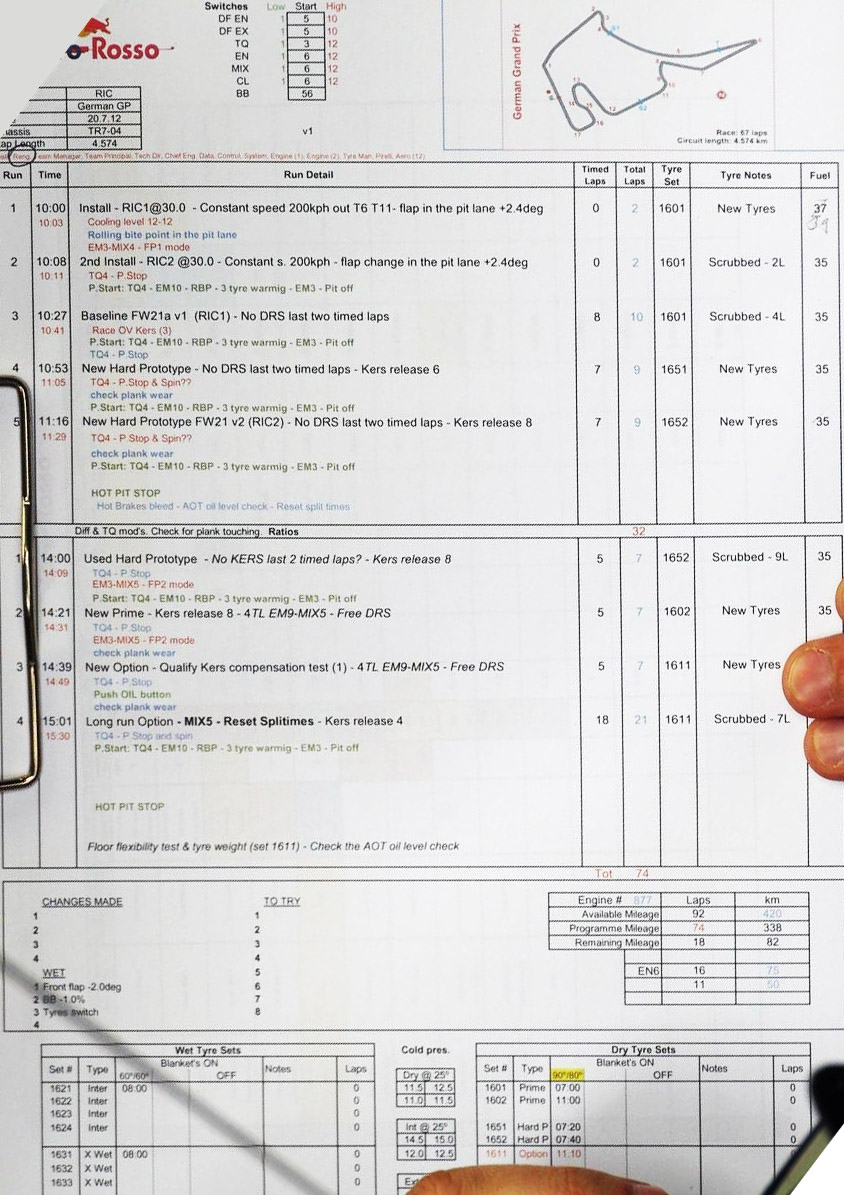 Switches Low Start High
DF EN 1 5 10
DF EX 1 5 10
TQ 1 3 12
EN 1 6 12
MIX 1 6 12
CL 1 6 12
BB 56
Rosso
German Grand Prix
Race: 67 laps
Circuit length: 4.574 km
RIC
German GP
20.7.12
TR7-04
Length 4.574
v1
Team Manager, Team Principal, Tech Dir, Chief Eng, Data, Control, System, Engine (1), Engine (2), Tyre Man, Pirelli, Aero (12)
Run Time Run Detail Timed Laps Total Laps Tyre Set Tyre Notes Fuel
1 10:00 Install - RIC1@30.0 - Constant speed 200kph out T6 T11- flap in the pit lane +2.4deg 0 2 1601 New Tyres 37
10:03 Cooling level 12-12 39
Rolling bite point in the pit lane
EM3-MIX4 - FP1 mode
2 10:08 2nd Install - RIC2 @30.0 - Constant s. 200kph - flap change in the pit lane +2.4deg 0 2 1601 Scrubbed - 2L 35
10:11 TQ4 - P.Stop
P.Start: TQ4 - EM10 - RBP - 3 tyre warmig - EM3 - Pit off
3 10:27 Baseline FW21a v1 (RIC1) - No DRS last two timed laps 8 10 1601 Scrubbed - 4L 35
10:41 Race OV Kers (3)
P.Start: TQ4 - EM10 - RBP - 3 tyre warmig - EM3 - Pit off
TQ4 - P.Stop
4 10:53 New Hard Prototype - No DRS last two timed laps - Kers release 6 7 9 1651 New Tyres 35
11:05 TQ4 - P.Stop & Spin??
check plank wear
P.Start: TQ4 - EM10 - RBP - 3 tyre warmig - EM3 - Pit off
5 11:16 New Hard Prototype FW21 v2 (RIC2) - No DRS last two timed laps - Kers release 8 7 9 1652 New Tyres 35
11:29 TQ4 - P.Stop & Spin??
check plank wear
P.Start: TQ4 - EM10 - RBP - 3 tyre warmig - EM3 - Pit off
HOT PIT STOP
Hot Brakes bleed - AOT oil level check - Reset split times
Diff & TQ mod's. Check for plank touching. Ratios 32
1 14:00 Used Hard Prototype - No KERS last 2 timed laps? - Kers release 8 5 7 1652 Scrubbed - 9L 35
14:09 TQ4 - P.Stop
EM3-MIX5 - FP2 mode
P.Start: TQ4 - EM10 - RBP - 3 tyre warmig - EM3 - Pit off
2 14:21 New Prime - Kers release 8 - 4TL EM9-MIX5 - Free DRS 5 7 1602 New Tyres 35
14:31 TQ4 - P.Stop
EM3-MIX5 - FP2 mode
check plank wear
3 14:39 New Option - Qualify Kers compensation test (1) - 4TL EM9-MIX5 - Free DRS 5 7 1611 New Tyres
14:49 TQ4 - P.Stop
Push OIL button
check plank wear
4 15:01 Long run Option - MIX5 - Reset Splitimes - Kers release 4 18 21 1611 Scrubbed - 7L
15:30 TQ4 - P Stop and spin
P.Start: TQ4 - EM10 - RBP - 3 tyre warmig - EM3 - Pit off
HOT PIT STOP
Floor flexibility test & tyre weight (set 1611) - Check the AOT oil level check
Tot 74
CHANGES MADE
1
2
3
4
WET
1 Front flap -2.0deg
2 BB -1.0%
3 Tyres switch
4
TO TRY
1
2
3
4
5
6
7
8
Engine # 877 Laps km
Available Mileage 92 420
Programme Mileage 74 338
Remaining Mileage 18 82
EN6 16 75
11 50
Wet Tyre Sets
Set # Type Blanket's ON 60°/60° OFF Notes Laps
1621 Inter 08:00 0
1622 Inter 0
1623 Inter 0
1624 Inter 0
1631 X Wet 08:00 0
1632 X Wet 0
1633 X Wet 0
Cold pres.
Dry @ 25°
11.5 12.5
11.0 11.5
Int @ 25°
14.5 15.0
12.0 12.5
Dry Tyre Sets
Set # Type Blanket's ON 90°/80° OFF Notes Laps
1601 Prime 07:00 0
1602 Prime 11:00 0
1651 Hard P 07:20 0
1652 Hard P 07:40 0
1611 Option 11:10 0